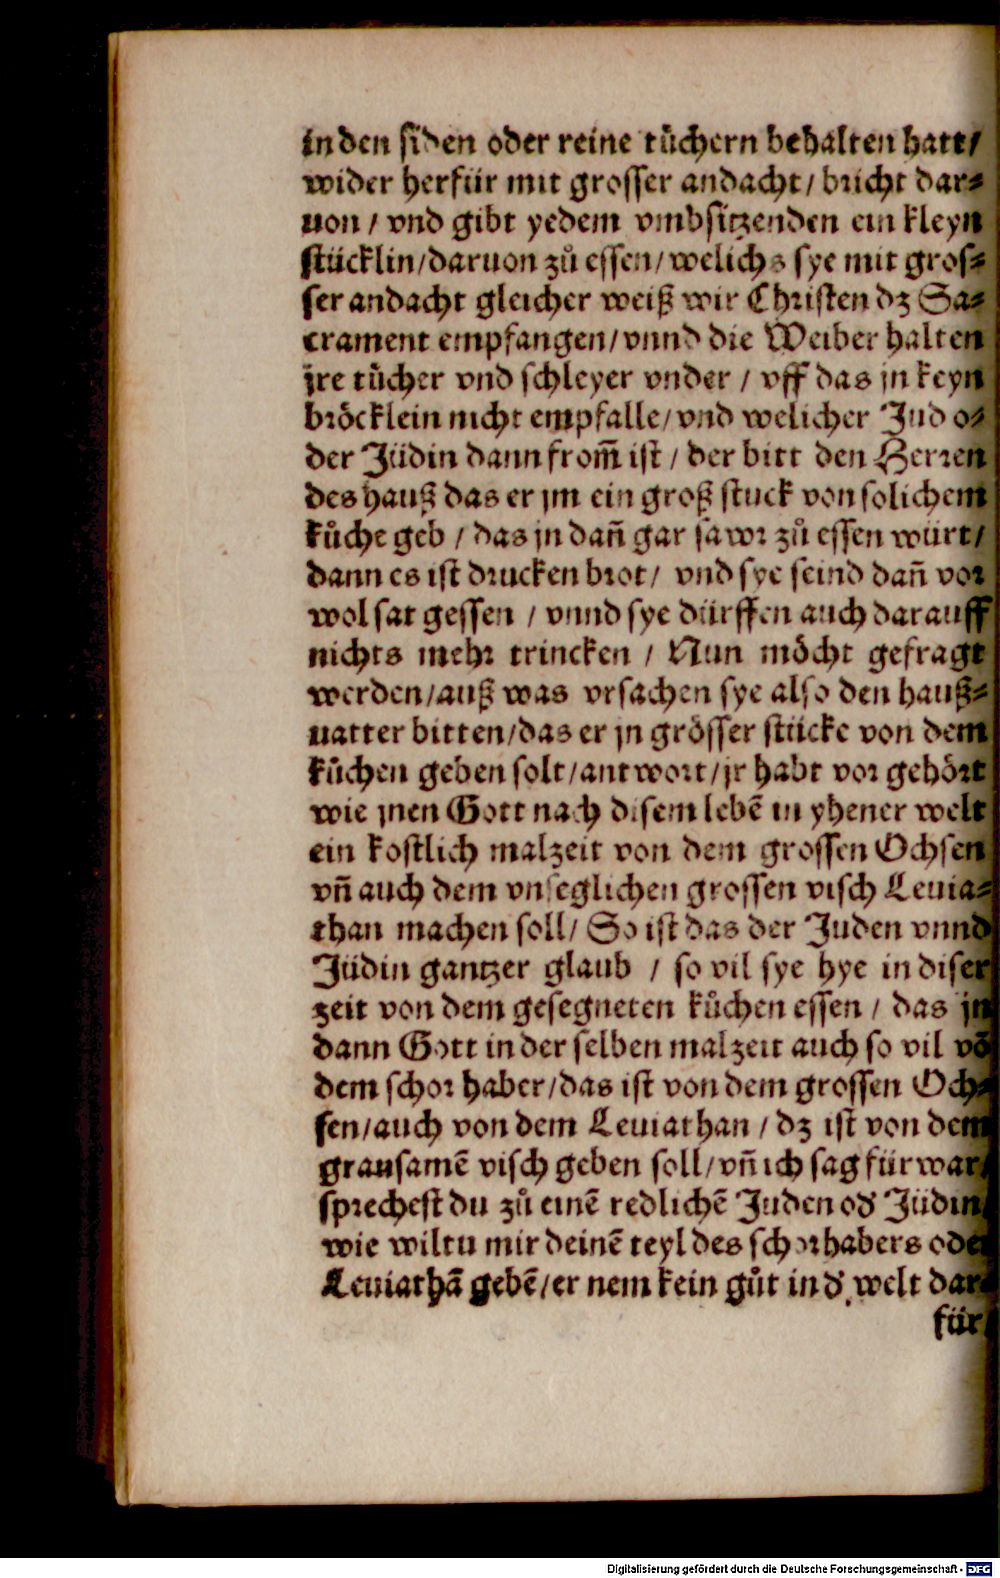 in den siden oder reine tůchern behalten hatt/
wider herfür mit grosser andacht/ bricht dar⸗
uon / vnd gibt yedem vmbsitzenden ein kleyn
stücklin/daruon zů essen/welichs sye mit gros⸗
ser andacht gleicher weiß wir Christen dz Sa⸗
crament empfangen/vnnd die Weiber halten
jre tůcher vnd schleyer vnder / vff das jn keyn
bröcklein nicht empfalle/vnd welicher Jud o⸗
der Jüdin dann from̃ ist / der bitt den Herren
des hauß das er jm ein groß stuck von solichem
kůche geb / das jn dañ gar sawr zů essen würt/
dann es ist drucken brot/ vnd sye seind dañ vor
wol sat gessen / vnnd sye dürffen auch darauff
nichts mehr trincken / Nun möcht gefragt
werden/auß was vrsachen sye also den hauß⸗
uatter bitten/das er jn grösser stücke von dem
kůchen geben solt/antwort/jr habt vor gehört
wie jnen Gott nach disem lebẽ in yhener welt
ein kostlich malzeit von dem grossen Ochsen
vñ auch dem vnseglichen grossen visch Leuia⸗
than machen soll/ So ist das der Juden vnnd
Jüdin gantzer glaub / so vil sye hye in diser
zeit von dem gesegneten kůchen essen / das jn
dann Gott in der selben malzeit auch so vil võ
dem schor haber/das ist von dem grossen Och⸗
sen/auch von dem Leuiathan / dz ist von dem
grausamẽ visch geben soll/vñ ich sag fürwar/
sprechest du zů einẽ redlichẽ Juden oď Jüdin/
wie wiltu mir deinẽ teyl des schorhabers oder
Leuiathã gebẽ/er nem kein gůt in ď welt dar⸗
für/
Digitalisierung gefördert durch die Deutsche Forschungsgemeinschaft - DFG